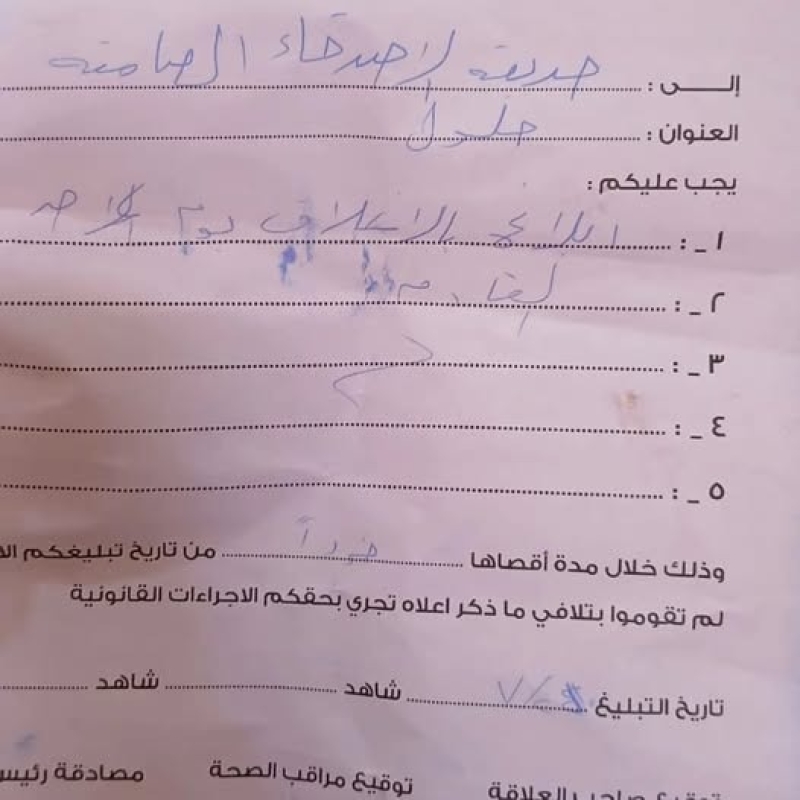 إلـــى : حديقة الأصدقاء الصامتة
العنوان : حلول
يجب عليكم :
١ _ : ابلاغ بالاغلاق يوم الاحد
٢ _ : القادم
٣ _ :
٤ _ :
٥ _ :
وذلك خلال مدة أقصاها فوراً من تاريخ تبليغكم
لم تقوموا بتلافي ما ذكر اعلاه تجري بحقكم الاجراءات القانونية
تاريخ التبليغ شاهد شاهد
توقيع صاحب العلاقة توقيع مراقب الصحة مصادقة رئيس